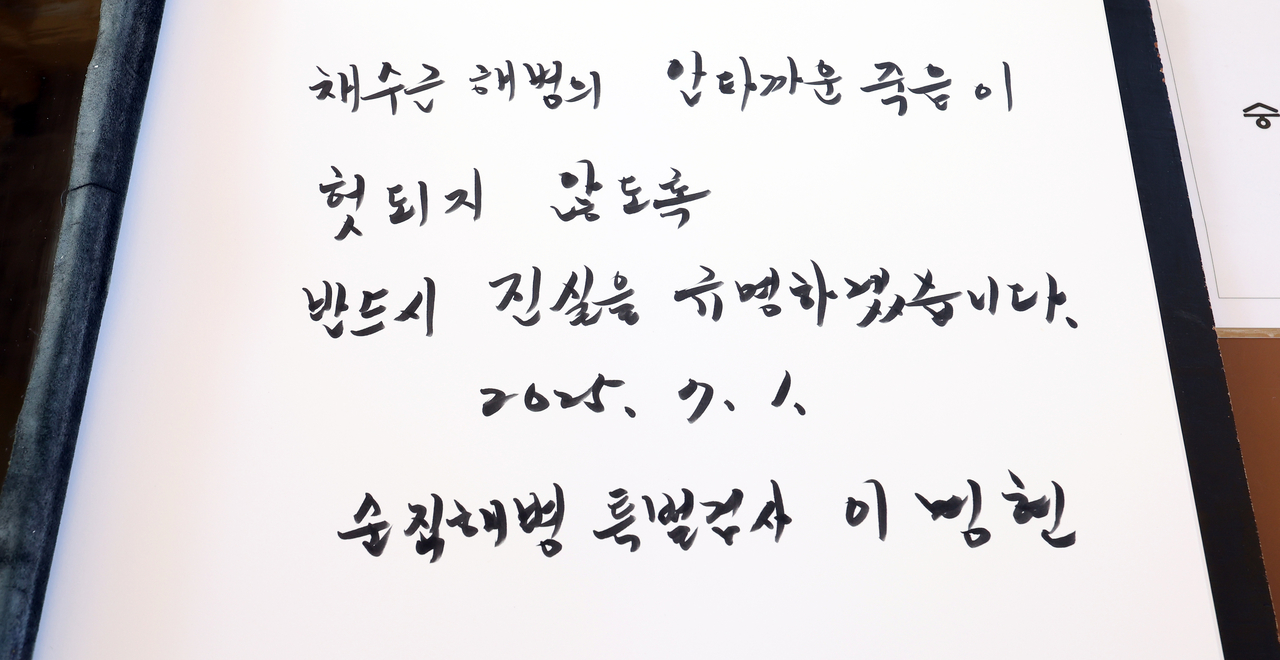 채수근 해병의 안타까운 죽음이
헛되지 않도록
반드시 진실을 규명하겠습니다.
2025. 7. 1.
순직해병 특별검사 이명현
숭